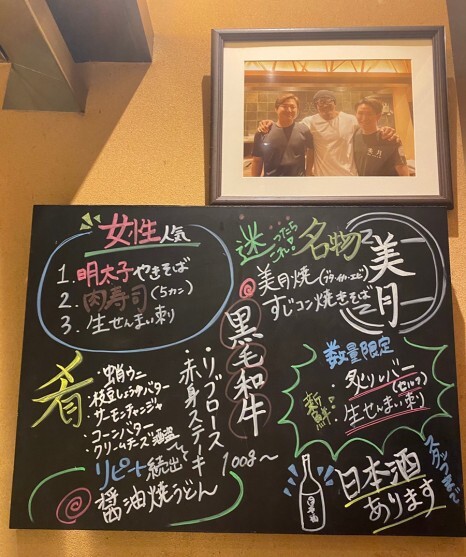 女性人気
1. 明太子やきそば
2. 肉寿司(5カン)
3. 生せんまい刺り
迷ったらこれ!
名物
美月
美月焼(ブタ・イカ・エビ)
すじコン焼きそば
黒毛和牛
・リブロース
・赤身ステーキ
100g〜
数量限定
新鮮!
・炙りレバー(セルフ)
・生せんまい刺り
肴
・蛸ウニ
・枝豆しょうゆバター
・サーモンチャンジャ
・コーンバター
・クリームチーズ酒盗
リピート続出
醤油焼うどん
日本酒
あります
スタッフまで
日本酒
美月